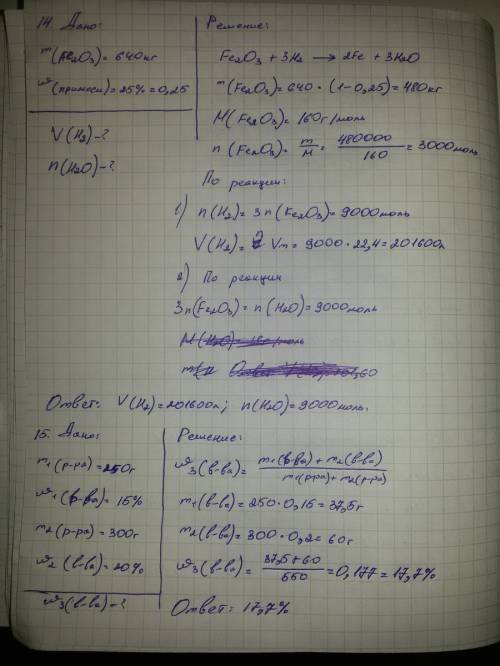 14. Дано:
m(Fe2O3) = 640кг
ω(примеси) = 25% = 0,25
V(H2) - ?
n(H2O) - ?
Решение:
Fe2O3 + 3H2 → 2Fe + 3H2O
m(Fe2O3) = 640 · (1-0,25) = 480кг
M(Fe2O3) = 160г/моль
n(Fe2O3) = m/M = 480000/160 = 3000моль
По реакции:
1) n(H2) = 3n(Fe2O3) = 9000моль
V(H2) = Vm = 9000 · 22,4 = 201600л
2) По реакции
3n(Fe2O3) = n(H2O) = 9000моль
Ответ: V(H2) = 201600л; n(H2O) = 9000моль.
15. Дано:
m1(р-ра) = 250г
ω1(в-ва) = 15%
m2(р-ра) = 300г
ω2(в-ва) = 20%
ω3(в-ва) - ?
Решение:
ω3(в-ва) = m1(в-ва) + m2(в-ва) / m1(р-ра) + m2(р-ра)
m1(в-ва) = 250 · 0,15 = 37,5г
m2(в-ва) = 300 · 0,2 = 60г
ω3(в-ва) = 37,5+60/550 = 0,177 = 17,7%
Ответ: 17,7%